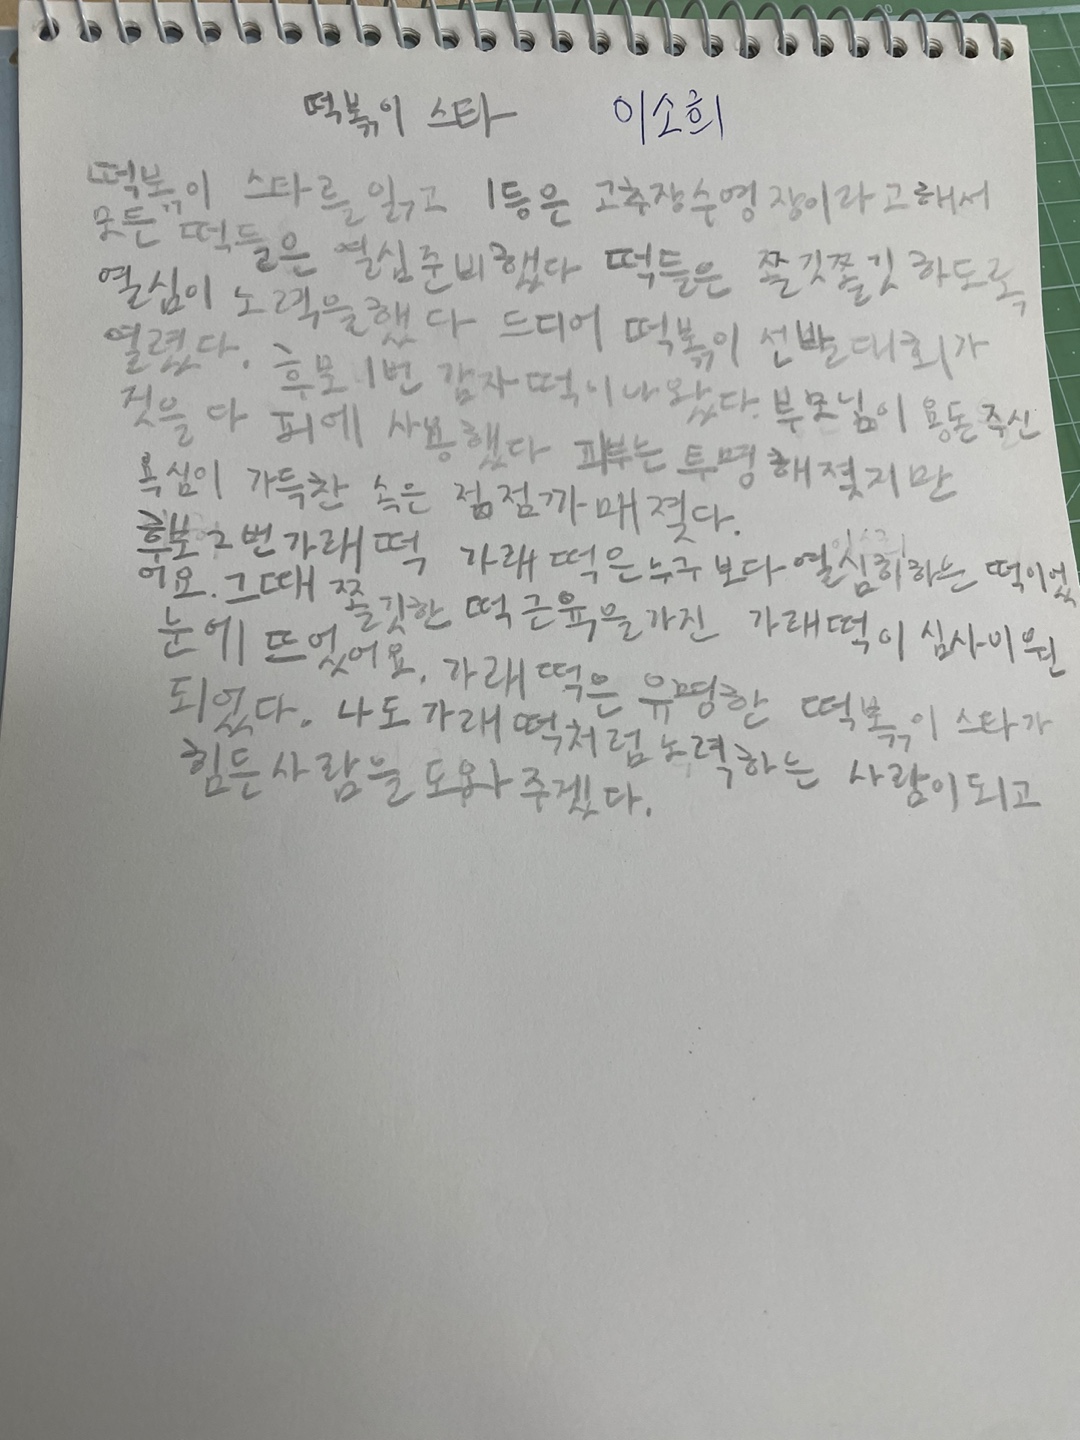 떡볶이 스타 이소희
떡볶이 스타를 읽구고 1등은 고추장수영장이라고해서
모든 떡들은 열심준비했다 떡들은 쫄깃쫄깃 하도록
열심이 노력을했다 드디어 떡볶이 선발대회가
열렸다. 후보1번 감자떡이나왔다. 부모님이 용돈주신
것을 다 피에 사용했다 피부는 투명해젖지만
욕심이 가득찬 속은 점점까매젖다.
후보2번가래떡 가래떡은누구보다 열심히하는 떡이었
어요. 그때 쫄깃한 떡근육을가진 가래떡이 심사이원
눈에 뜨었어요. 가래떡은 유명한 떡볶이스타가
되었다. 나도가래떡처럼노력하는 사람이되고
힘든사람을 도와주겠다.